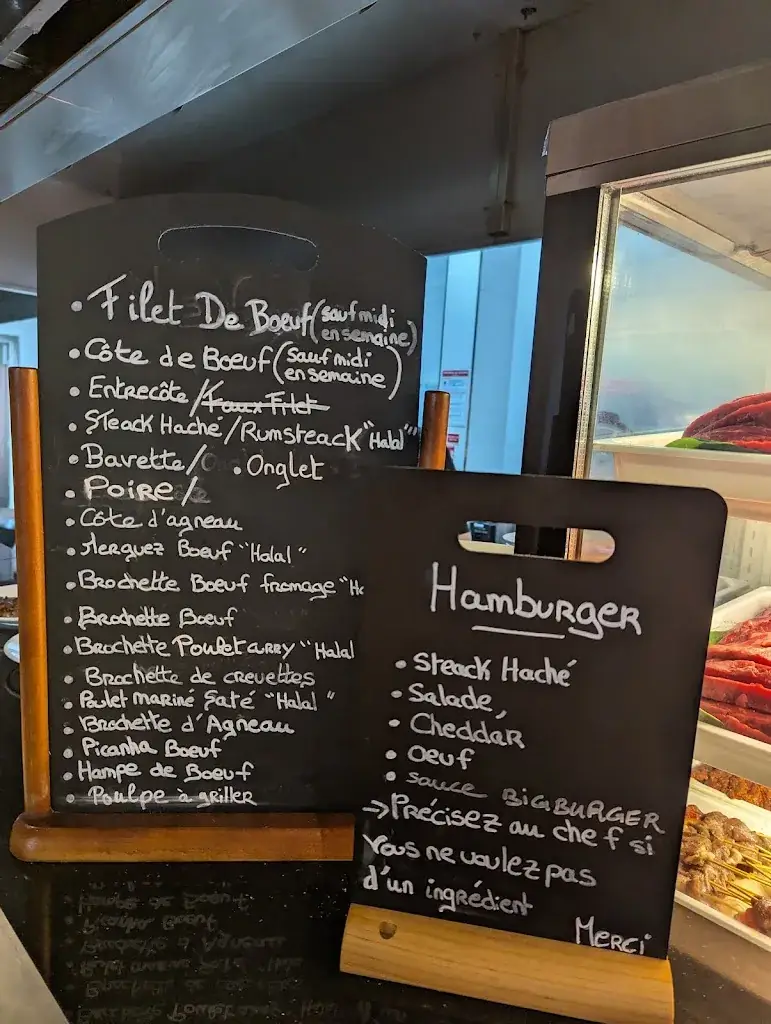 • Filet De Boeuf (sauf midi en semaine)
• Côte de Boeuf (sauf midi en semaine)
• Entrecôte / Faux Filet
• Steack Haché / Rumsteack "Halal"
• Bavette / • Onglet
• Poire /
• Côte d'agneau
• Merguez Boeuf "Halal"
• Brochette Boeuf fromage "Ha
• Brochette Boeuf
• Brochette Poulet curry "Halal
• Brochette de crevettes
• Poulet mariné Saté "Halal"
• Brochette d'Agneau
• Picanha Boeuf
• Hampe de Boeuf
• Poulpe à griller
Hamburger
• Steack Haché
• Salade,
• Cheddar
• Oeuf
• Sauce BIGBURGER
→ Précisez au chef si
vous ne voulez pas
d'un ingrédient
Merci